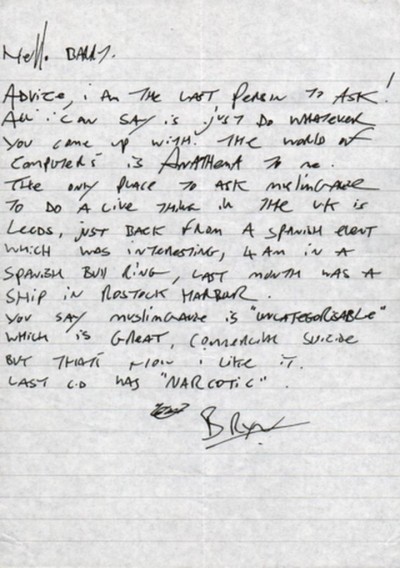 Hello BARRY.
ADVICE, i AM THE LAST PERSON TO ASK!
All i CAN SAY is JUST DO WHATEVER
YOU COME UP WITH. THE WORLD OF
COMPUTERS is ANATHEMA TO me.
THE ONLY PLACE TO ASK muslimgauze
TO DO A LIVE THING IN THE UK is
LEEDS, JUST BACK FROM A SPANISH EVENT
WHICH WAS INTERESTING, 4 AM IN A
SPANISH BULL RING, LAST MONTH WAS A
SHIP IN ROSTOCK HARBOUR.
YOU SAY muslimgauze is "UNCATEGORISABLE"
WHICH IS GREAT, COMMERCIAL SUICIDE
BUT THATS HOW i LIKE iT.
LAST CD WAS "NARCOTIC".
BRYN